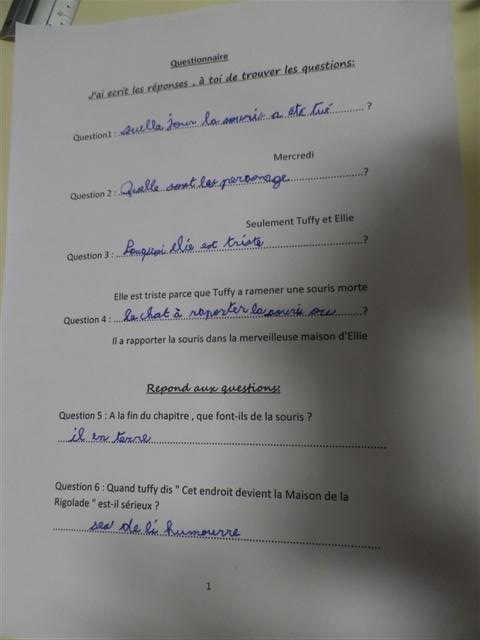 Questionnaire
J'ai ecrit les réponses , à toi de trouver les questions:
Question1 : quelle jour la souris a ete tué ?
Mercredi
Question 2 : Quelle sont les personage ?
Seulement Tuffy et Ellie
Question 3 : Pouquoi elie est triste ?
Elle est triste parce que Tuffy a ramener une souris morte
Question 4 : le chat à raporter la souris ou ?
Il a rapporter la souris dans la merveilleuse maison d'Ellie
Repond aux questions:
Question 5 : A la fin du chapitre , que font-ils de la souris ?
il en terre
Question 6 : Quand tuffy dis " Cet endroit devient la Maison de la
Rigolade " est-il sérieux ?
ses de li humourre
1